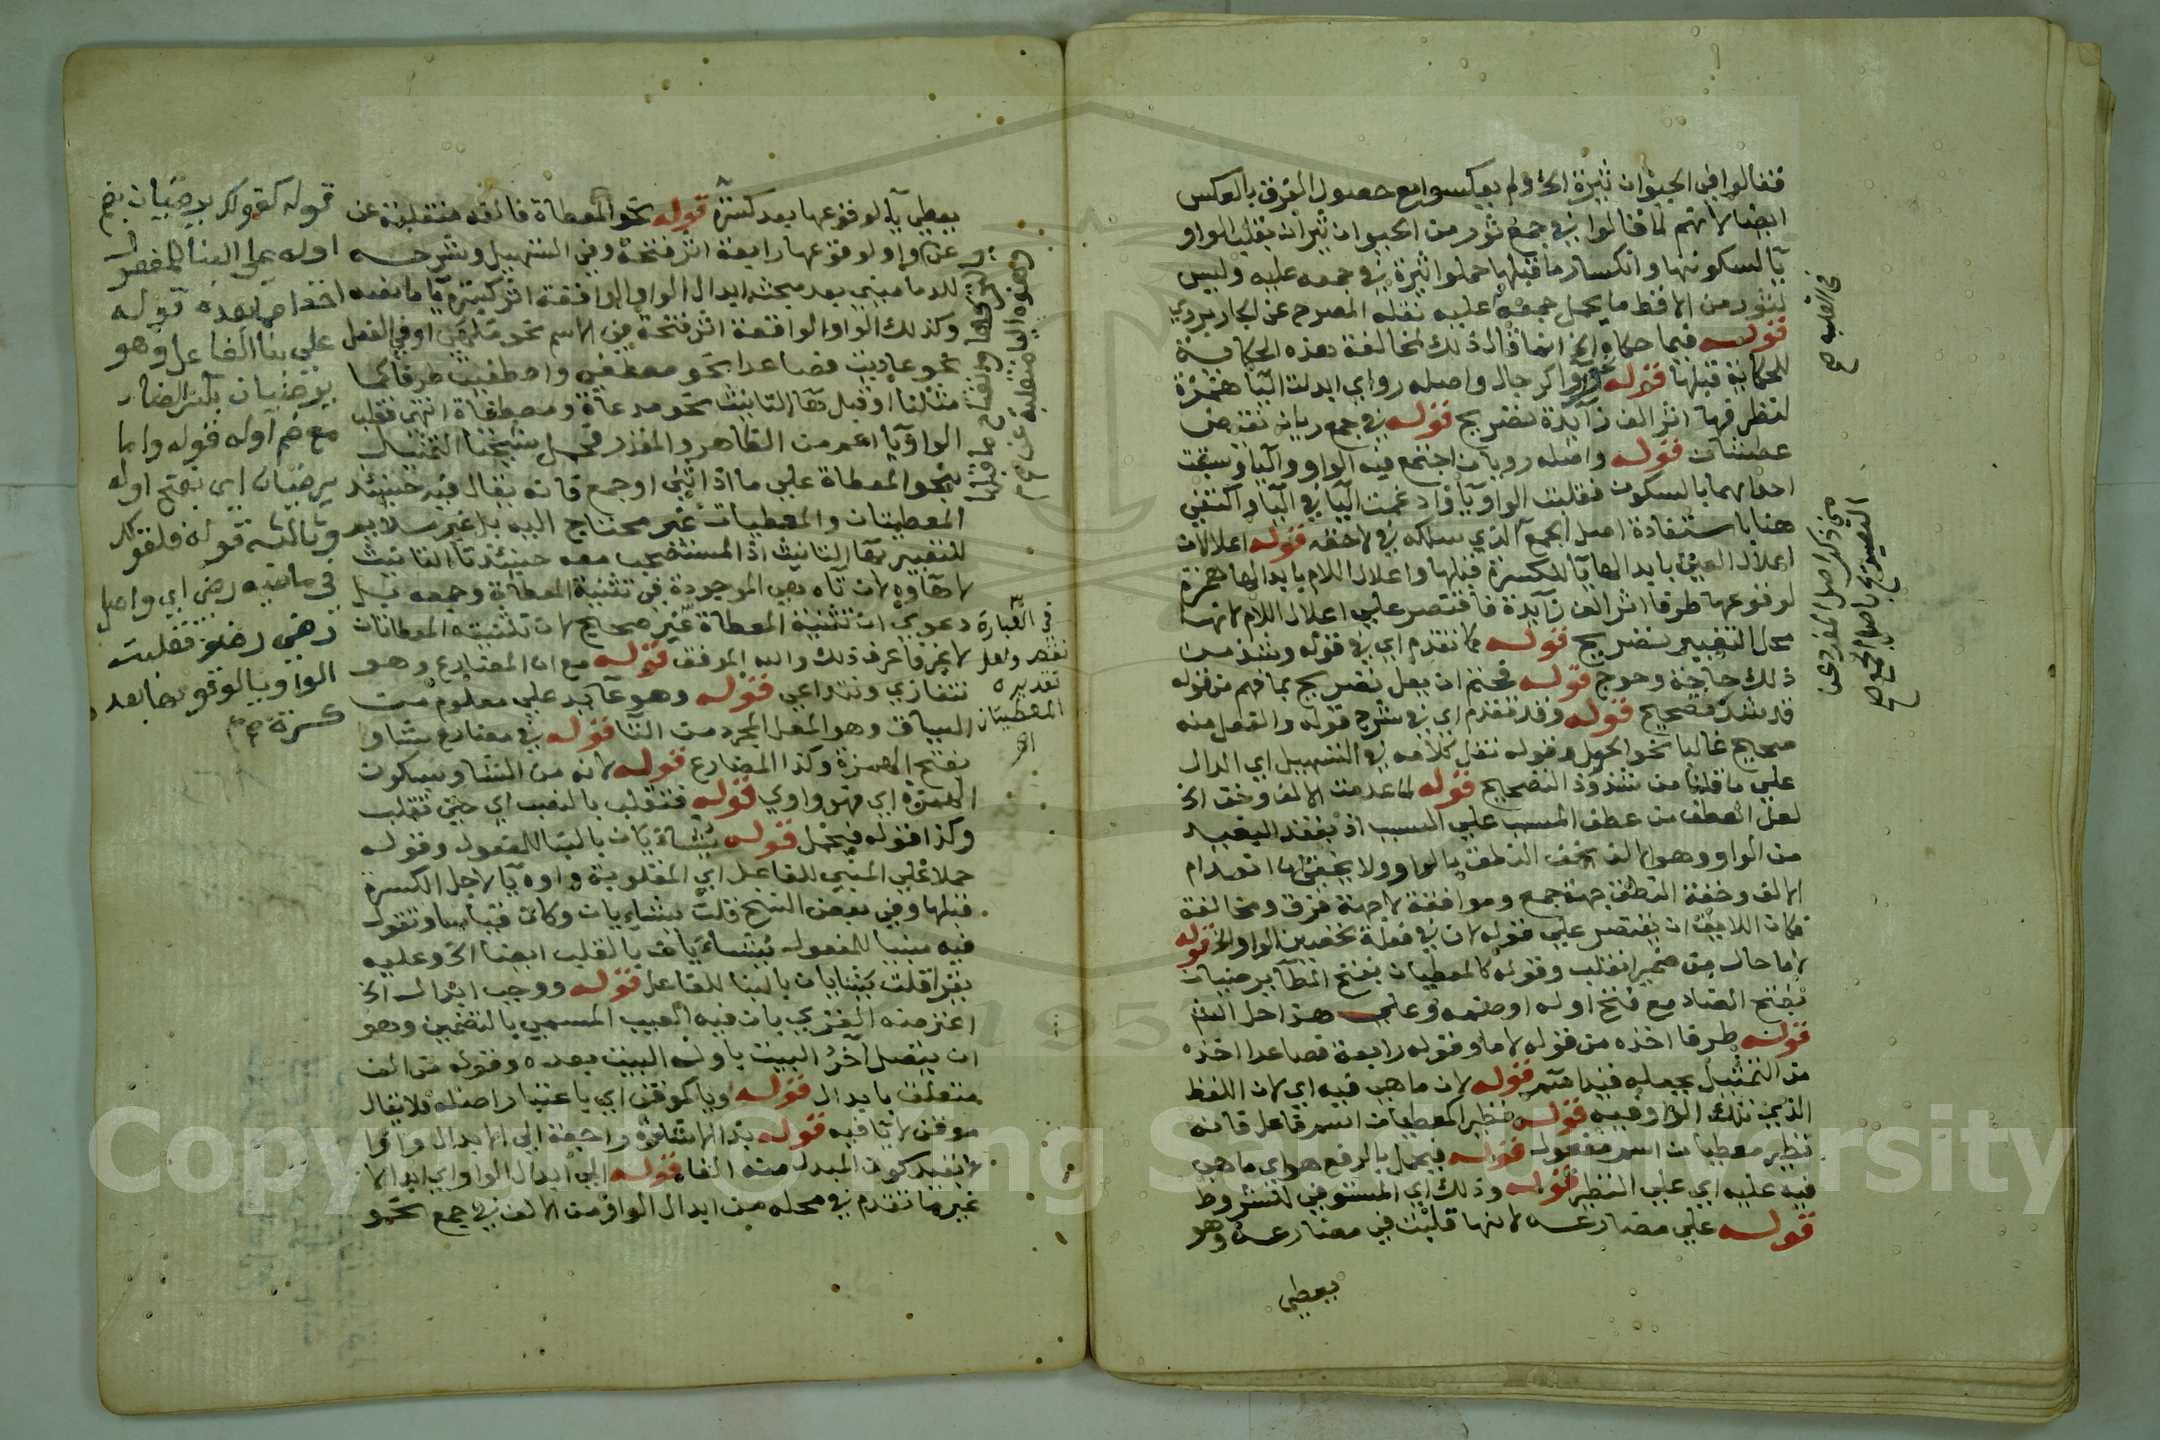 فقالوا في الحيوان ثيرة الخ ولم يعكسوا مع حصول الفرق بالعكس
ايضا لانهم لما قالوا في جمع ثور من الحيوان ثيران بقلب الواو
يآ لسكونها وانكسار ما قبلها حملوا ثيرة في جمعه عليه وليس
لثور من الاقط ما يحمل جمعه عليه نقله المصرح عن الجاربردي
قوله فيما حكاه الخ انما قال ذلك لمخالفة هذه الحكاية
للحكاية قبلها قوله وروا كرجال واصله رواي ابدلت اليا همزة
لتطرفها اثر الف زآيدة تصريح قوله في جمع ريان نقيض
عطشان قوله واصله رويان اجتمع فيه الواو واليا وسبقت
احداهما بالسكون فقلبت الواو يآ وادغمت اليا في اليا واكتفي
هنا باستفادة اصل الجمع الذي سلكه في لاحقه قوله اعلالان
اعلال العين بابدالها يآ للكسرة قبلها واعلال اللام بابدالها همزة
لوقوعها طرفا اثر الف زآيدة فاقتصر علي اعلال اللام لانها
محل التغيير تصريح قوله مما تقدم اي في قوله وشذ من
ذلك حاجة وحوج قوله فحتم ان يعل تصريح بما فهم من قوله
قد يشذ تصحيح قوله وقد تقدم اي في شرح قوله والفعل منه
صحيح غالبا نحو الحول وقوله نقل كلامه في التسهيل اي الدال
علي ما قلنا من شذوذ التصحيح قوله لما عدمت الالف وخف الخ
لعل العطف من عطف المسبب علي السبب اذ بفقد البعيد
من الواو وهو الالف يخف النطق بالواو ولا يخفي ان انعدام
الالف وخفة النطق جهة جمع وموافقة لا جهة فرق ومخالفة
فكان اللايق ان يقتصر علي قوله لان في فعلة تحصين الواو الخ قوله
لاما حال من ضمير انقلب وقوله كالمعطيان بفتح الطآ يرضيان
بفتح الضاد مع فتح اوله او ضمه وعلي هذا حل الشم
قوله طرفا اخذه من قوله لاما وقوله رابعة فصاعدا اخذه
من التمثيل بجعله قيدا قوله لان ما هي فيه اي لان اللفظ
الذي تلك الواو فيه قوله نظير كمعطيان اسم فاعل فانه
نظير معطيان اسم مفعول قوله فيحمل بالرفع هو اي ما هي
فيه عليه اي علي النظير قوله وذلك اي المستوفي للشروط
قوله علي مضارعه لانها قلبت في مضارعه وهو
يعطي
في القلب صح
التصريح باصل الجمع صح
يعطي يآ لوقوعها بعد كسرة قوله نحو المعطاة فالفه منقلبة عن
عن واو لوقوعها رابعة اثر فتحة وفي التسهيل وشرحه
للدماميني بعد مبحث ابدال الواو الواقعة اثر كسرة يآ ما نصه
وكذلك الواو الواقعة اثر فتحة في الاسم نحو ملهي او في الفعل
نحو عاديت فصاعدا نحو مصطفي واصطفيت طرفا كما
مثلنا او قبل هآ التانيث نحو مدعاة ومصطفاة انتهي فقلب
الواو يآ اعم من الظاهر والمقدر فحمل شيخنا التمثيل
بنحو المعطاة علي ما اذا ثني او جمع فانه يقال فيه حينئذ
المعطيتان والمعطيات غير محتاج اليه بل غير سلايم
للتعبير بهآ التانيث اذ المستصحب معه حينئذ تآ التانيث
لا هآوه لان تآه هي الموجودة في تثنية المعطاة وجمعه بل
دعوي ان تثنية المعطاة غير صحيح لان تثنيته المعطاتان
لا غير فاعرف ذلك والله الموفق قوله مع ان المضارع وهو
تتغازي وتتداعي قوله وهو عآيد علي معلوم من
السياق وهو الفعل المجرد من التا قوله في مضارع شاو
بفتح الهمزة وكذا المضارع قوله لانه من الشاو بسكون
الهمزة اي فهو واوي قوله فتقلب بالنصب اي حتي تقلب
وكذا قوله فيحمل قوله يشايان بالبنا للمفعول وقوله
حملا علي المبني للفاعل اي المقلوبة واوه يآ لاجل الكسرة
قبلها وفي بعض النسخ قلت يشايان وكان قياسا وتقول
فيه مبنيا للمفعول يشايان بالقلب ايضا الخ وعليه
يقرا قلت يشايان بالبنا للفاعل قوله ووجب ابدال الخ
اعترضه الغزي بان فيه العيب المسمي بالتضمين وهو
ان يتصل آخر البيت باول البيت بعده وقوله من الف
متعلق بابدال قوله ويا كموقن اي باعتبار اصله فلا يقال
موقن لا يا فيه قوله بذا لها الاشارة راجعة الي الابدال واوا
لا بقيد كون المبدل منه الفا قوله الي ابدال الواو اي ابدالا
غير ما تقدم في محله من ابدال الواو من الالف في جمع نحو
قوله كقولك يرضيان بضم
اوله علي البنا للمفعول
اخذا مما بعده قوله
علي بنا الفاعل وهو
يرضيان بكسر الضاد
مع ضم اوله قوله واما
يرضيان اي بفتح اوله
وثالثه قوله فلقولك
في ماضيه رضي اي واصل
رضي رضو فقلبت
الواو يا لوقوعها بعد
كسرة
في العبارة
نقص ولعل
تقديره
المعطيتان
الخ